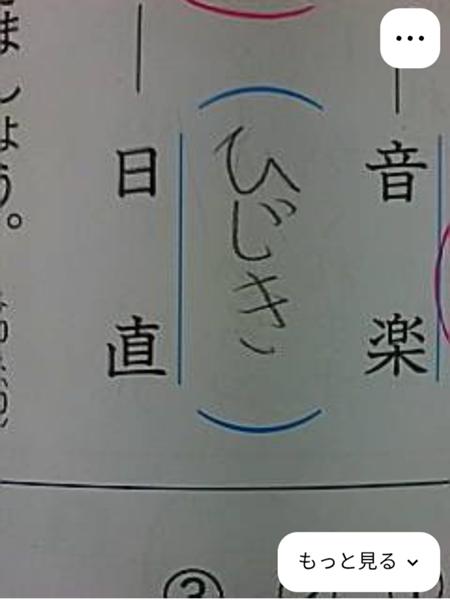 音楽
日直
ひじき
ましょう。
③
もっと見る